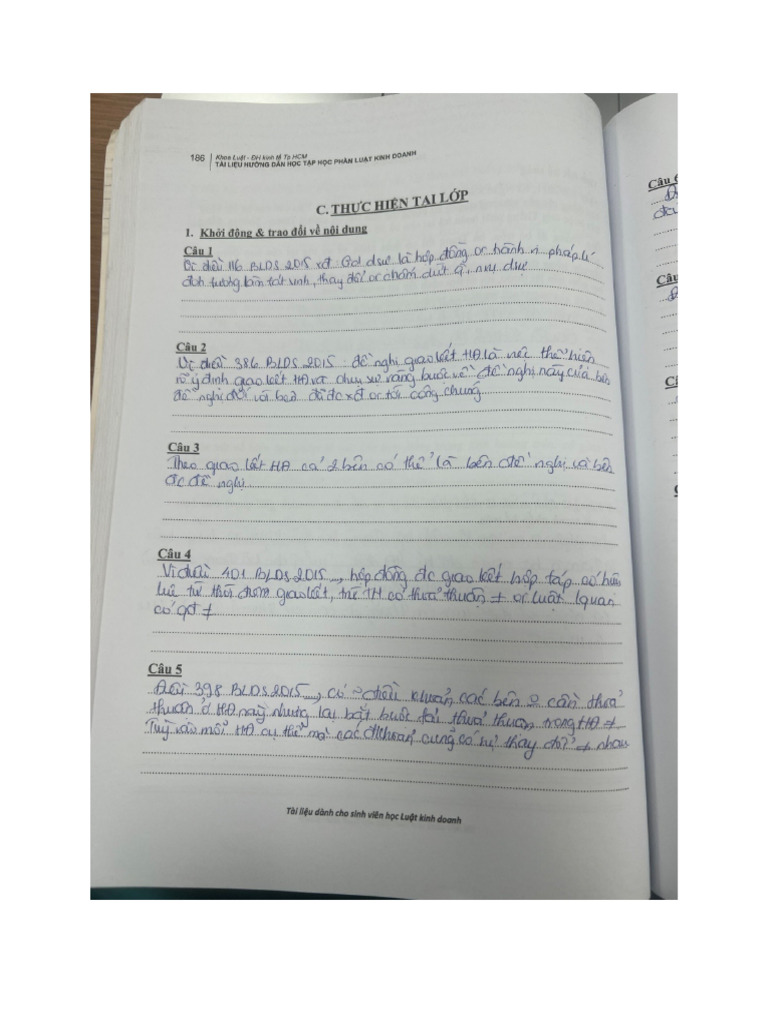 186 Khoa Luật - ĐH kinh tế Tp.HCM
TÀI LIỆU HƯỚNG DẪN HỌC TẬP HỌC PHẦN LUẬT KINH DOANH
C. THỰC HIỆN TẠI LỚP
1. Khởi động & trao đổi về nội dung
Câu 1
Vì điều 116 BLDS 2015 : Gd dsự là hợp đồng or hành pháp lí
đơn phương làm phát sinh, thay đổi or chấm dứt q, nvụ dsự
Câu 2
Vì điều 386 BLDS 2015 : đề nghị giao kết HĐ là việc thể hiện
rõ ý định giao kết HĐ và chịu sự ràng buộc về đề nghị này của bên
đề nghị đối với bên đã đc xđ or tới công chúng
Câu 3
Theo giao kết HĐ cả 2 bên có thể là bên đề nghị và bên
đc đề nghị
Câu 4
Vì điều 401 BLDS 2015 ..., hợp đồng đc giao kết hợp pháp có hiệu
lực từ thời điểm giao kết, trừ TH có thoả thuận ≠ or luật lquan
có qđ ≠
Câu 5
Điều 398 BLDS 2015 ..., có điều khoản các bên cần thoả
thuận ở HĐ này nhưng lại bắt buộc fải thoả thuận trong HĐ ≠
Tuỳ vào mỗi HĐ cụ thể mà các đkhoản cũng có sự thay đổi ≠ nhau
Tài liệu dành cho sinh viên học Luật kinh doanh
Câu
Câu